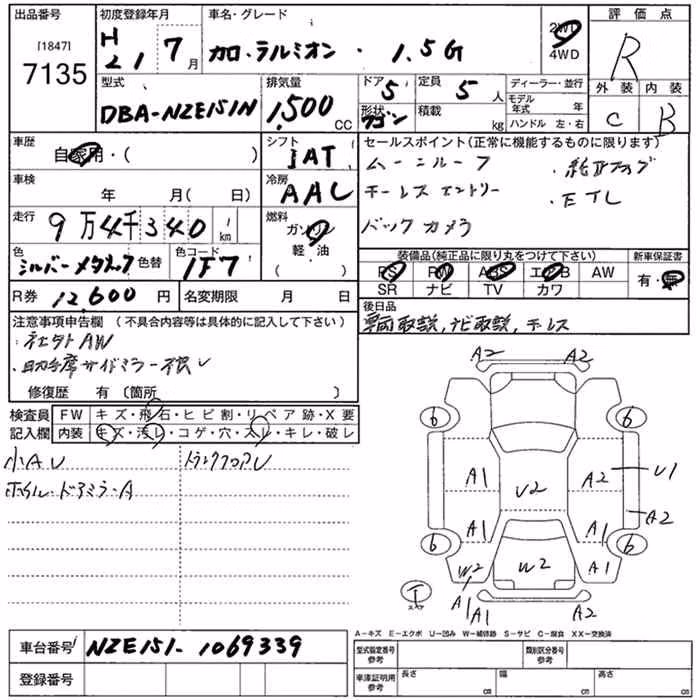 出品番号
[1847]
7135
初度登録年月
H21 7月
車名・グレード
カロ・ラルミオン・ 1.5G
2WD
4WD
評価点
R
外装 内装
C B
型式
DBA-NZE151N
排気量
1,500 CC
ドア
5
形状
ワゴン
定員
5 人
積載
kg
ディーラー・並行
モデル年式 年
ハンドル 左・右
車歴
自家用・( )
シフト
IAT
セールスポイント(正常に機能するものに限ります)
ムーンルーフ
キーレスエントリー
・ETC
バックカメラ
車検
年 月( 日)
冷房
AAC
走行
9万4千340 km
燃料
ガソリン
軽油
( )
色
シルバーメタリック
色替
色コード
1F7
装備品(純正品に限り丸をつけて下さい)
PS PW ABS エアB AW
SR ナビ TV カワ
新車保証書
有・無
R券 12,600 円
名変期限 月 日
後日品
車両取説, ナビ取説, キーレス
注意事項申告欄 (不具合内容等は具体的に記入して下さい)
・社外AW
・助手席サイドミラー不良
修復歴 有 〔箇所 〕
検査員記入欄
FW キズ・飛石・ヒビ割・リペア跡・X要
内装 キズ・汚レ・コゲ・穴・スレ・キレ・破レ
小AU
トランクフロアU
ホイル・ドアミラーA
A2 A2
6 6
A1 U2 A2 U1
A1 A1 A2
6 6
W2 W2 A1
A1 A1 A2
T
スペア
A-キズ E-エクボ U-凹み W-補修跡 S-サビ C-腐食 XX-交換済
車台番号 NZE151-1069339
登録番号
型式指定番号
参考
類別区分番号
参考
車庫証明用
参考
長さ cm
幅 cm
高さ cm